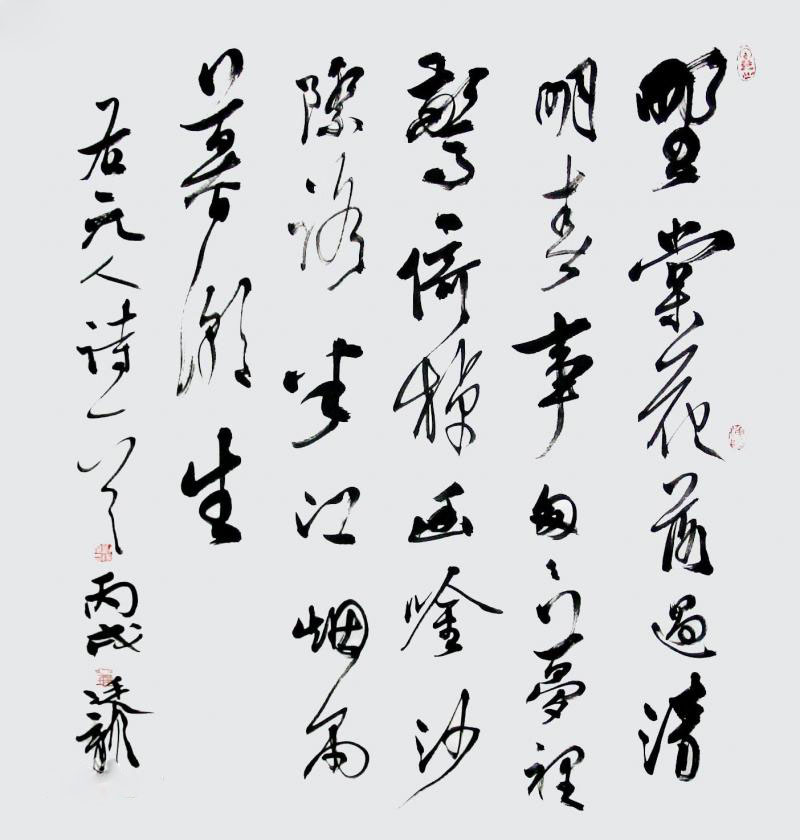 野棠花落過清
明春事匆々夢裡
驚倚棹幽唫沙
際路半江烟雨
暮潮生
右元人詩一首 丙戌